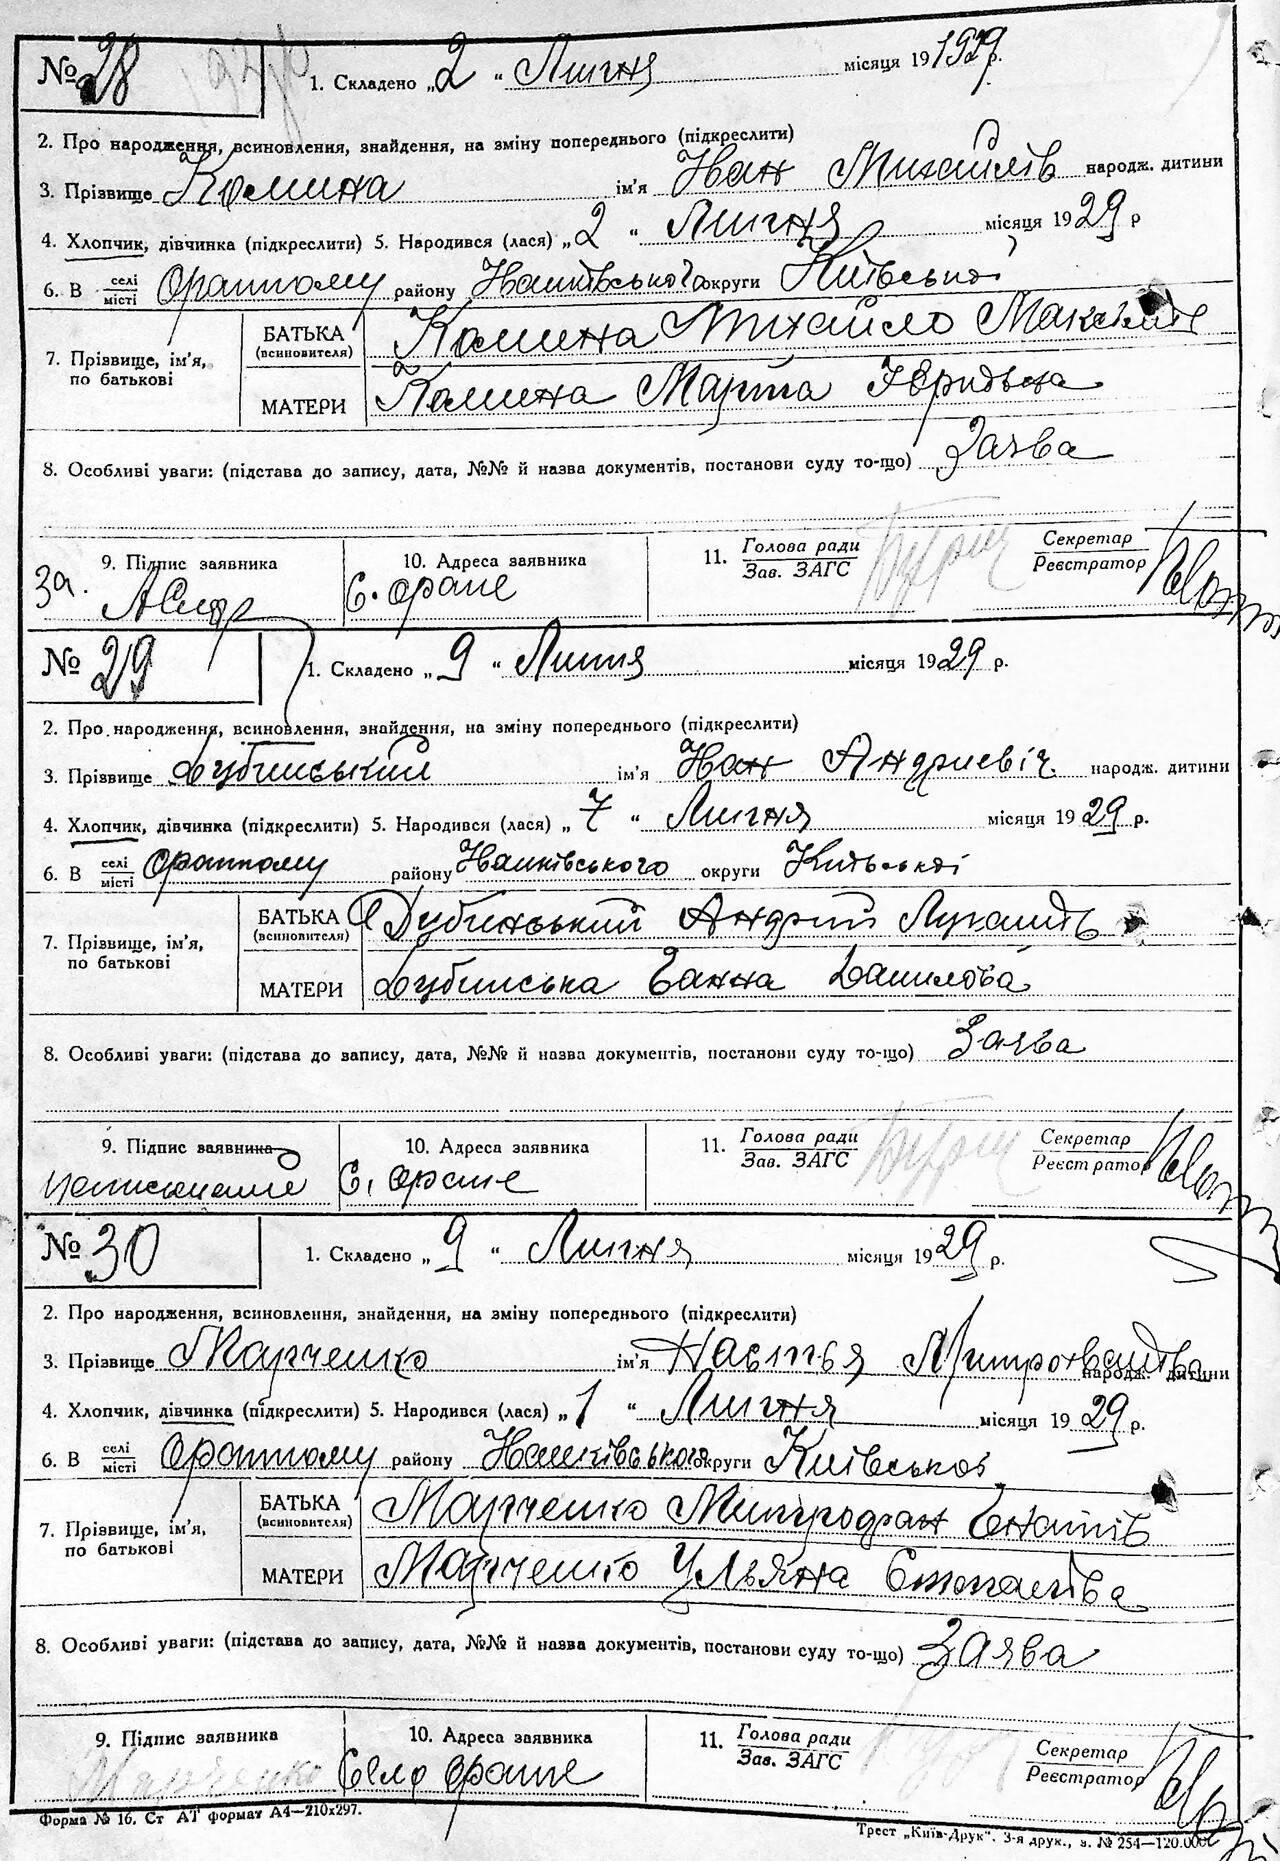 № 28 1. Складено „2“ Липня місяця 19 1929 р.
2. Про народження, всиновлення, знайдення, на зміну попереднього (підкреслити)
3. Прізвище Комина ім'я Іван Михайлів народж. дитини
4. Хлопчик, дівчинка (підкреслити) 5. Народився (лася) „2“ Липня місяця 1929 р
6. В селі/місті Оратному району Іванківського округи Київської
7. Прізвище, ім'я, по батькові
БАТЬКА (всиновителя) Комина Михайло
МАТЕРИ Комина Марта
8. Особливі уваги: (підстава до запису, дата, №№ й назва документів, постанови суду то-що) Заява
9. Підпис заявника 10. Адреса заявника 11. Голова ради/Зав. ЗАГС Секретар/Реєстратор
За. С. Оране
№ 29 1. Складено „9“ Липня місяця 1929 р.
2. Про народження, всиновлення, знайдення, на зміну попереднього (підкреслити)
3. Прізвище Дубинський ім'я Іван Андриєвіч народж. дитини
4. Хлопчик, дівчинка (підкреслити) 5. Народився (лася) „7“ Липня місяця 1929 р.
6. В селі/місті Оратному району Іванківського округи Київської
7. Прізвище, ім'я, по батькові
БАТЬКА (всиновителя) Дубинський Андрій
МАТЕРИ Дубинська Ганна Данилова
8. Особливі уваги: (підстава до запису, дата, №№ й назва документів, постанови суду то-що) Заява
9. Підпис заявника 10. Адреса заявника 11. Голова ради/Зав. ЗАГС Секретар/Реєстратор
С. Оране
№ 30 1. Складено „9“ Липня місяця 1929 р.
2. Про народження, всиновлення, знайдення, на зміну попереднього (підкреслити)
3. Прізвище Марченко ім'я Настья народж. дитини
4. Хлопчик, дівчинка (підкреслити) 5. Народився (лася) „1“ Липня місяця 1929 р.
6. В селі/місті Оратному району Іванківського округи Київської
7. Прізвище, ім'я, по батькові
БАТЬКА (всиновителя) Марченко Митрофан Гнатів
МАТЕРИ Марченко Ульяна
8. Особливі уваги: (підстава до запису, дата, №№ й назва документів, постанови суду то-що) Заява
9. Підпис заявника 10. Адреса заявника 11. Голова ради/Зав. ЗАГС Секретар/Реєстратор
Марченко Село Оране
Форма № 16. Ст АТ формат А4—210x297.
Трест „Київ-Друк“. 3-я друк., з. № 254—120.000